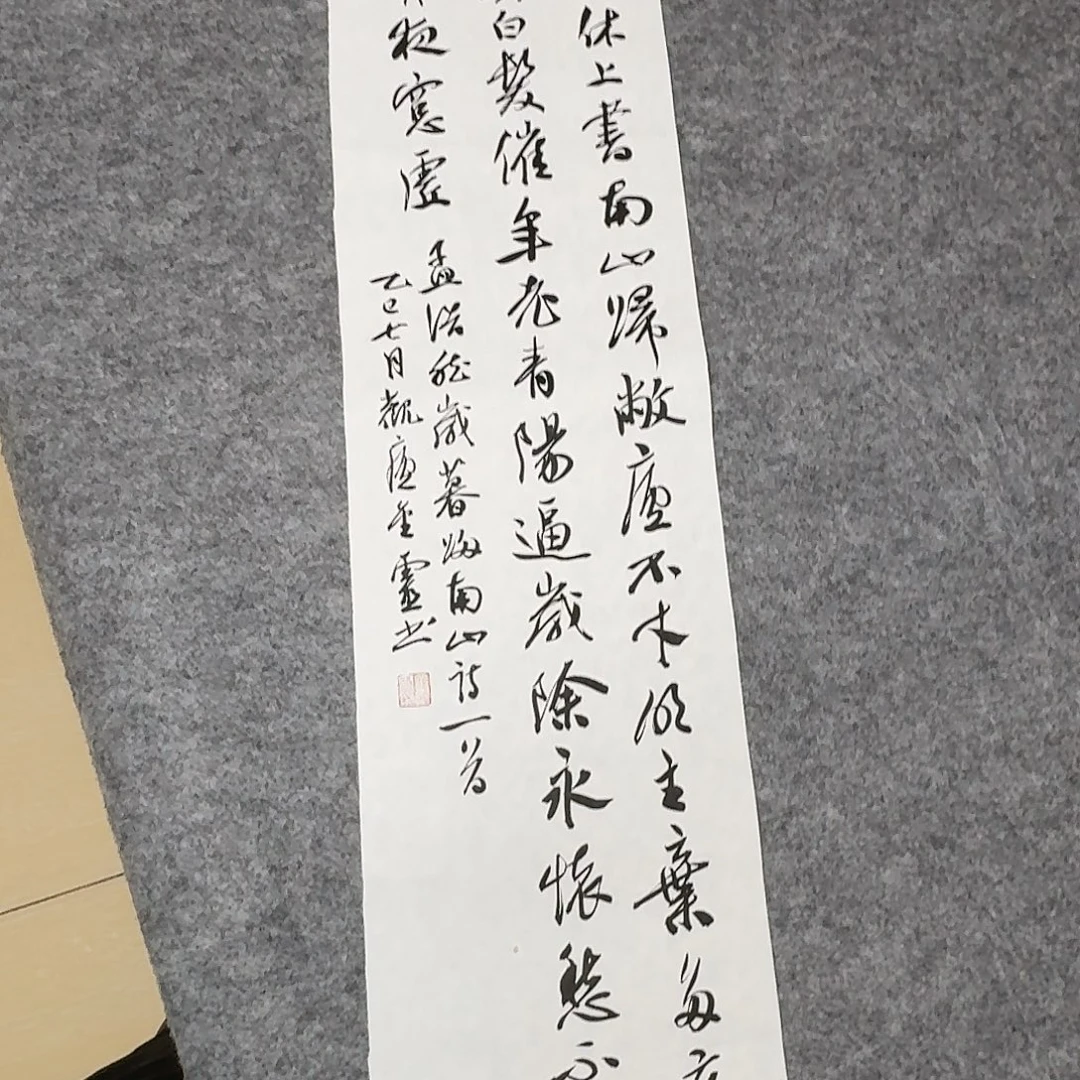 休上書南山歸敝廬不才明主棄多病
白髮催年老青陽逼歲除永懷愁不
夜窻虛 孟浩然歲暮歸南山詩一首
乙巳七月觀廬金靈书